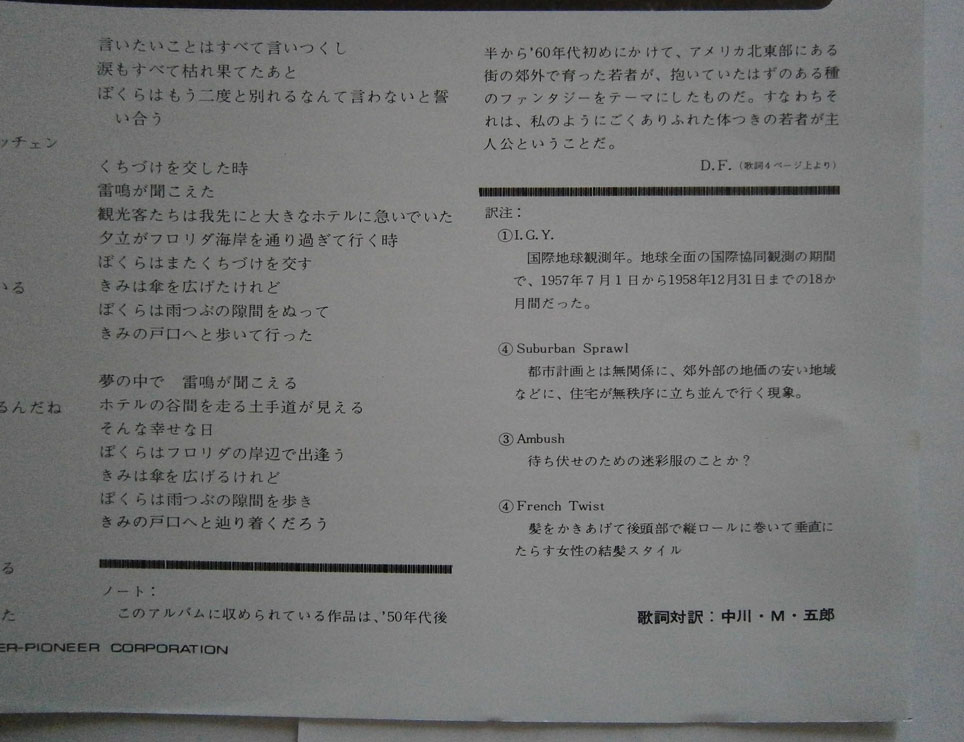 ッチェン
いる
るんだね
る
た
言いたいことはすべて言いつくし
涙もすべて枯れ果てたあと
ぼくらはもう二度と別れるなんて言わないと誓
い合う
くちづけを交した時
雷鳴が聞こえた
観光客たちは我先にと大きなホテルに急いでいた
夕立がフロリダ海岸を通り過ぎて行く時
ぼくらはまたくちづけを交す
きみは傘を広げたけれど
ぼくらは雨つぶの隙間をぬって
きみの戸口へと歩いて行った
夢の中で　雷鳴が聞こえる
ホテルの谷間を走る土手道が見える
そんな幸せな日
ぼくらはフロリダの岸辺で出逢う
きみは傘を広げるけれど
ぼくらは雨つぶの隙間を歩き
きみの戸口へと辿り着くだろう
ノート：
このアルバムに収められている作品は、'50年代後
半から'60年代初めにかけて、アメリカ北東部にある
街の郊外で育った若者が、抱いていたはずのある種
のファンタジーをテーマにしたものだ。すなわちそ
れは、私のようにごくありふれた体つきの若者が主
人公ということだ。
D.F.（歌詞4ページ上より）
訳注：
①I.G.Y.
国際地球観測年。地球全面の国際協同観測の期間
で、1957年7月1日から1958年12月31日までの18か
月間だった。
④Suburban Sprawl
都市計画とは無関係に、郊外部の地価の安い地域
などに、住宅が無秩序に立ち並んで行く現象。
③Ambush
待ち伏せのための迷彩服のことか？
④French Twist
髪をかきあげて後頭部で縦ロールに巻いて垂直に
たらす女性の結髪スタイル
歌詞対訳：中川・M・五郎
ER-PIONEER CORPORATION